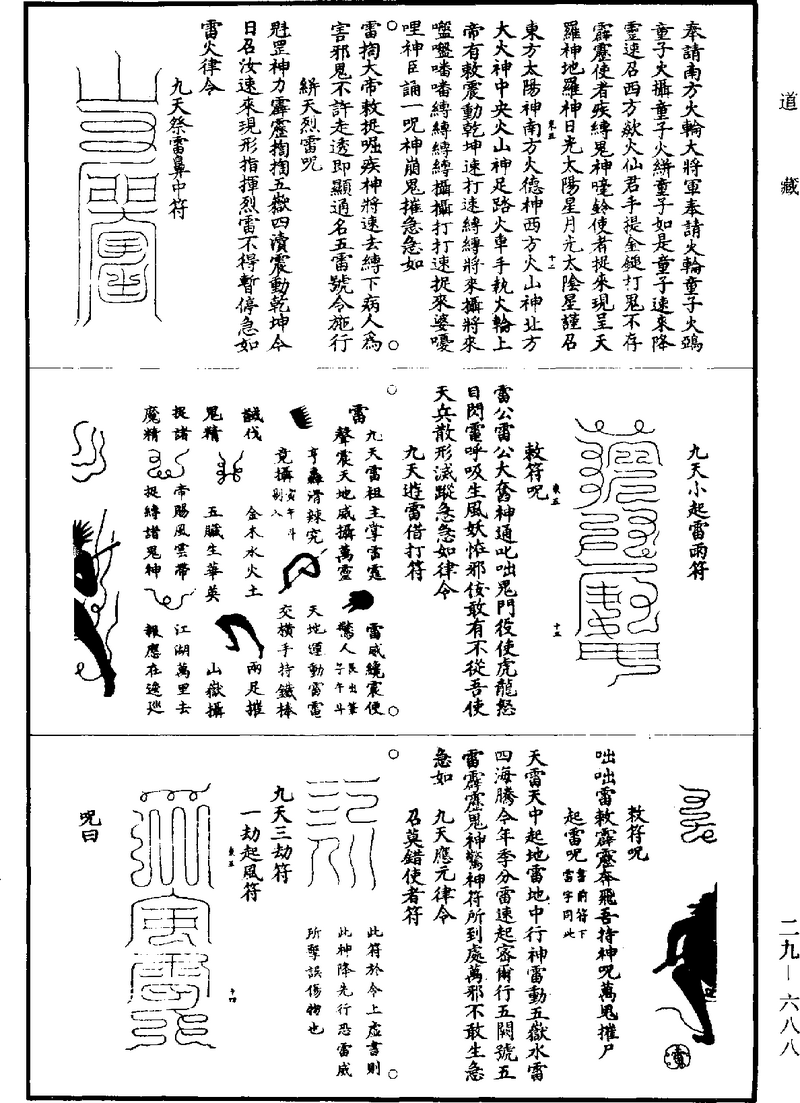 道藏
二九—六八八
奉請南方火輪大將軍奉請火輪童子火鵶
童子火攝童子火絣童子如是童子速來降
靈速召西方歘火仙君手提金鎚打鬼不存
霹靂使者疾縛鬼神 鈴使者捉來現呈天
羅神地羅神日光太陽星月光太陰星謹召
東方太陽神南方火德神西方火山神北方
大火神中央火山神足踏火車手執火輪上
帝有敕震動乾坤速打速縛縛將來攝將來
囕囕嚩嚩縛縛攝攝打打速捉來婆嚘
哩神臣誦一呪神崩鬼摧急急如
雷搊大帝敕捉啒疾神將速去縛下病人為
害邪鬼不許走透即顯通名五雷號令施行
絣天烈雷呪
魁罡神力霹靂搊搊五嶽四瀆震動乾坤令
日召汝速來現形指揮烈雷不得暫停急如
雷火律令
九天祭雷鼻中符
九天小起雷雨符
敕符呪
雷公雷公大奮神通叱咄鬼門役使虎龍怒
目閃電呼吸生風妖怪邪侫敢有不從吾使
天兵散形滅蹤急急如律令
九天遊雷借打符
雷
九天雷祖主掌雷霆
聲震天地威攝萬靈
雷威纔震便
驚人
子午斗
亨轟滑辣究
竟攝
寅午斗
剔入
天地運動雷電
交橫手持鐵棒
誠伐
金木水火土
兩足摧
鬼精
五臟生華英
山嶽攝
捉諸
帝賜風雲帶
江湖萬里去
魔精
捉縛諸鬼神
報應在逡巡
敕符呪
咄咄雷敕霹靂奔飛吾持神呪萬鬼摧尸
起雷呪
書前符下
雷字同此
天雷天中起地雷地中行神雷動五嶽水雷
四海騰今年季分雷速起密爾行五闕號五
雷霹靂鬼神驚神符所到處萬邪不敢生急
急如
九天應元律令
召莫錯使者符
此符於令上虛書則
此神降先行恐雷威
所擊誤傷物也
九天三劫符
一劫起風符
呪曰